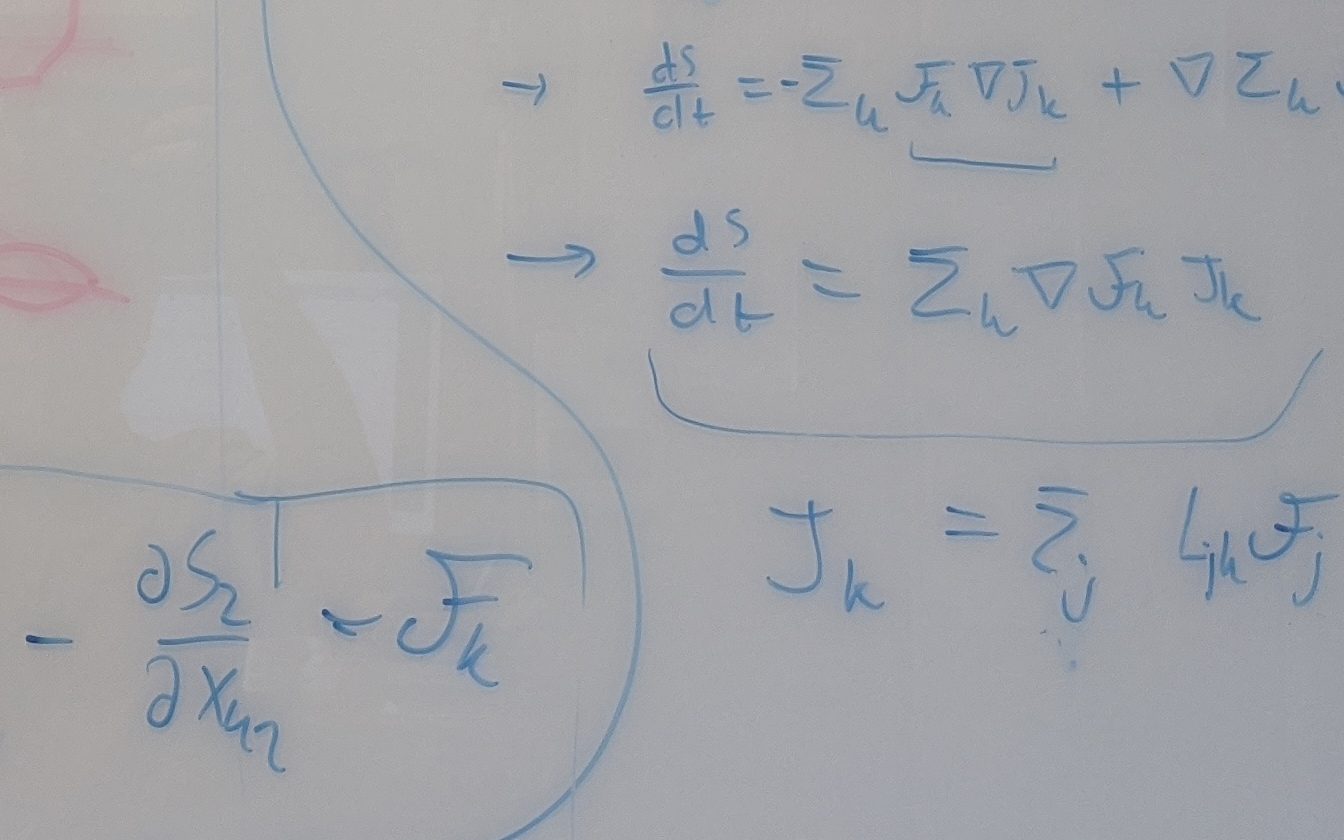 → dS/dt = -Σ_k ℱ_k ∇J_k + ∇ Σ_k
→ dS/dt = Σ_k ∇ℱ_k J_k
J_k = Σ_j L_jk ℱ_j
- ∂S_2/∂X_k2 = ℱ_k